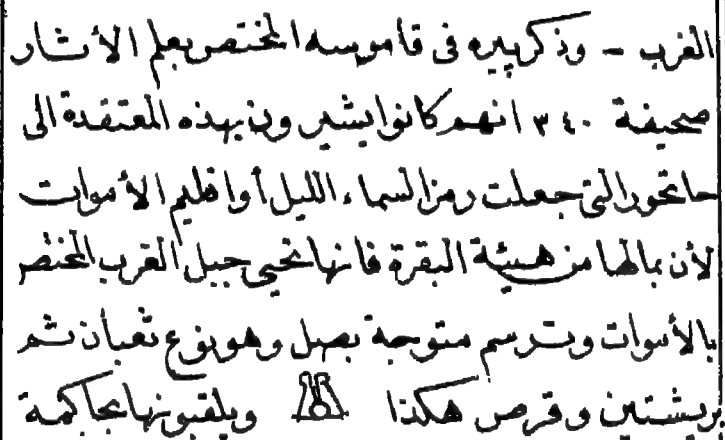 الغرب - وذكر بيره فى قاموسه المختصر بعلم الأثار
صحيفة ٣٤٠ انهم كانوا يشيرون بهذه المعتقدة الى
حاتحور التى جعلت رمزا لسماء الليل أو اقليم الأموات
لأن بمالها من هيئة البقرة فانها تحيى جبل الغرب المختص
بالأموات وترسم متوجة بصل وهو نوع ثعبان ثم
بريشتين وقرص هكذا ويلقبونها بحاكمة